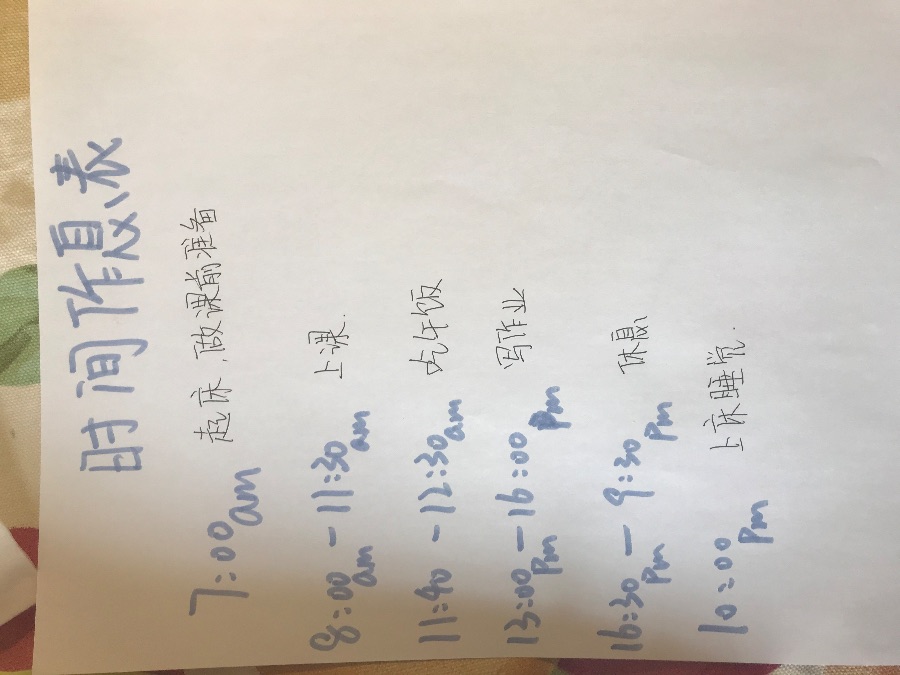 时间作息表
7:00am 起床,做课前准备
8:00am - 11:30am 上课.
11:40 - 12:30am 吃午饭
13:00pm - 16:00pm 写作业
16:30pm - 9:30pm 休息
10:00pm 上床睡觉.